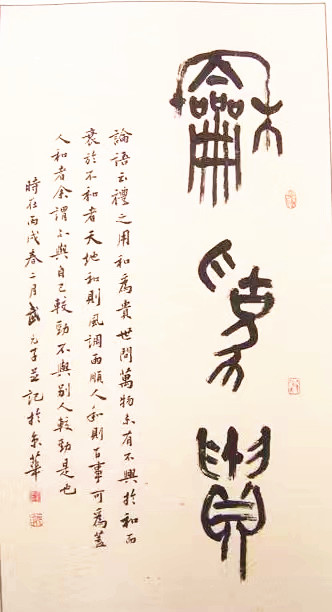 龢為貴
論語云禮之用和為貴世間萬物未有不興於和而
衰於不和者天地和則風調雨順人和則百事可為蓋
人和者余謂不與自己較勁不與別人較勁是也
時在丙戌春二月武元子並記於京華